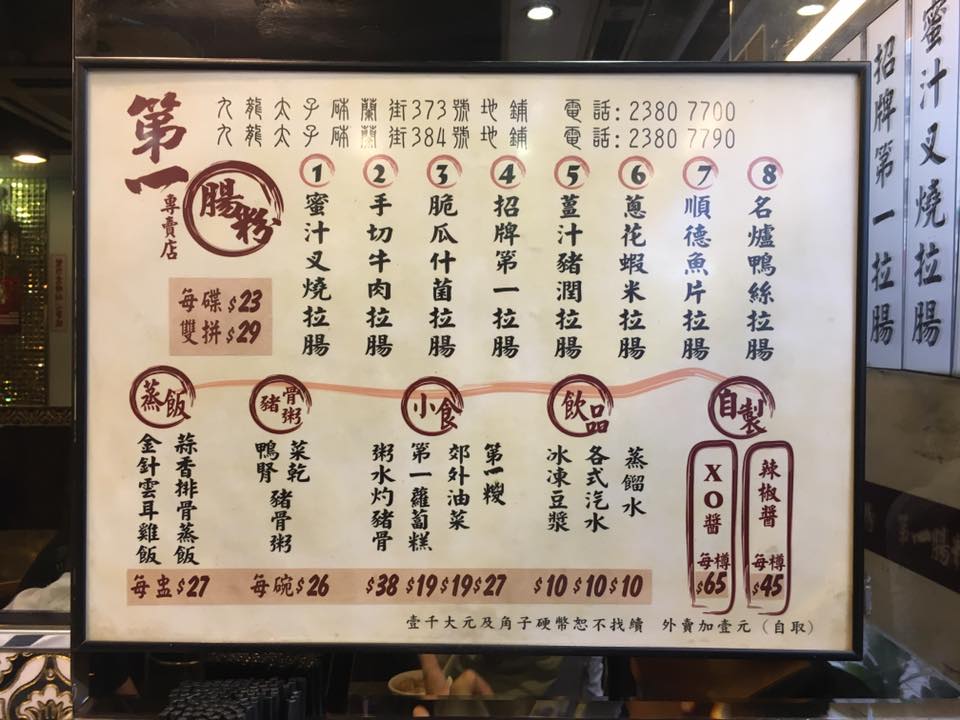 第一
腸粉
專賣店
九龍太子砵蘭街373號地鋪 電話:2380 7700
九龍太子砵蘭街384號地鋪 電話:2380 7790
每碟$23
雙拼$29
1 蜜汁叉燒拉腸
2 手切牛肉拉腸
3 脆瓜什菌拉腸
4 招牌第一拉腸
5 薑汁豬潤拉腸
6 蔥花蝦米拉腸
7 順德魚片拉腸
8 名爐鴨絲拉腸
蒸飯
蒜香排骨蒸飯
金針雲耳雞飯
每盅$27
豬骨粥
菜乾
鴨腎
豬骨粥
每碗$26
小食
第一糉
郊外油菜
第一蘿蔔糕
粥水灼豬骨
$38 $19 $19 $27
飲品
蒸餾水
各式汽水
冰凍豆漿
$10 $10 $10
自製
辣椒醬 每樽$45
XO醬 每樽$65
壹千大元及角子硬幣恕不找續 外賣加壹元(自取)
蜜汁叉燒拉腸
招牌第一拉腸